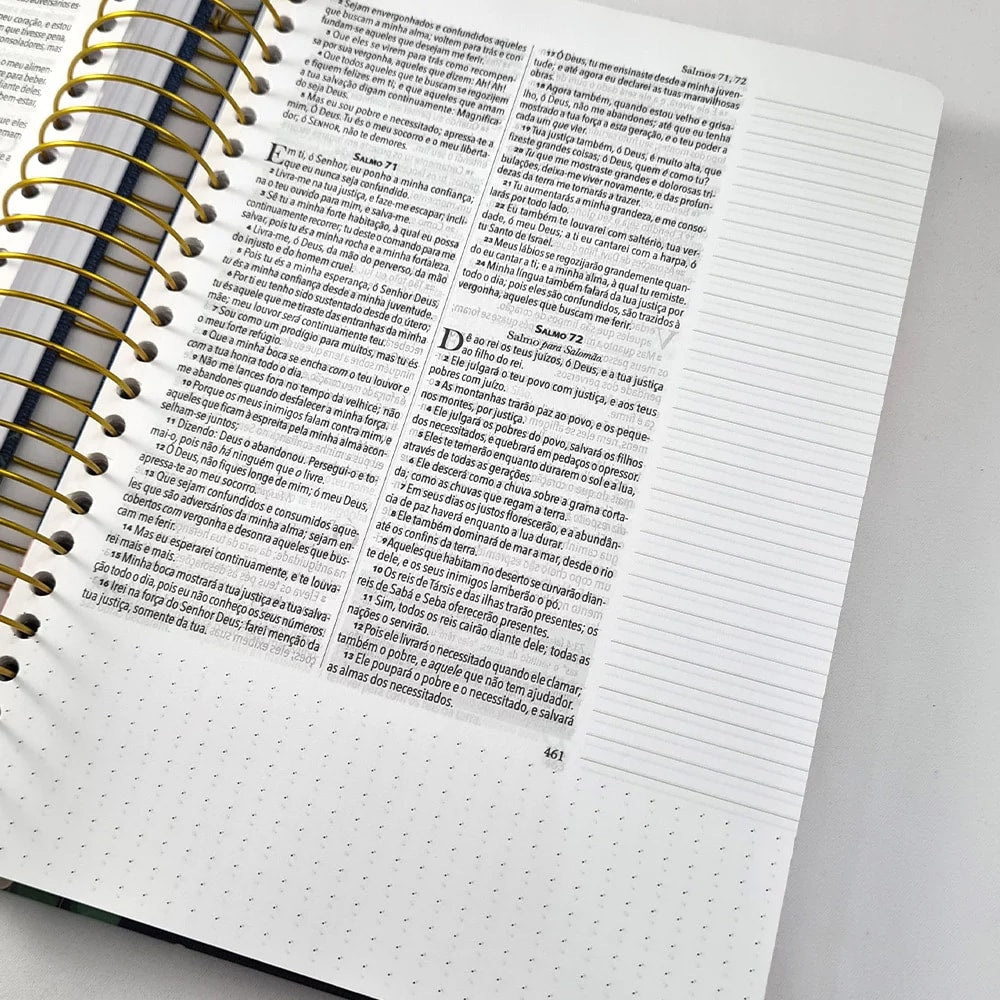 res adversários es-
meu coração, e estou
que tivesse pena,
consoladores, mas
o meu alimen-
para beber.
diante deles
bem-estar,
que eles
2 Sejam envergonhados e confundidos aqueles
que buscam a minha alma; voltem para trás e con-
fundam-se aqueles que desejam me ferir.
3 Que eles se virem para trás como recompen-
sa por sua vergonha, aqueles que dizem: Ah! Ah!
4 Que todos aqueles que te buscam se regozijem
e fiquem felizes em ti, e que aqueles que amam
a tua salvação digam continuamente: Magnifica-
do seja Deus.
5 Mas eu sou pobre e necessitado; apressa-te a
mim, Ó Deus. Tu és o meu socorro e o meu liberta-
dor, ó SENHOR, não te demores.
SALMO 71
Em ti, ó Senhor, eu ponho a minha confiança;
que eu nunca seja confundido.
2 Livra-me na tua justiça, e faze-me escapar; incli-
na o teu ouvido para mim, e salva-me.
3 Sê tu a minha forte habitação, à qual eu possa
continuamente recorrer; tu deste o comando para me
salvar, pois tu és a minha rocha e a minha fortaleza.
4 Livra-me, ó Deus, da mão do perverso, da mão
do injusto e do homem cruel.
5 Pois tu és a minha esperança, ó Senhor Deus;
tu és a minha confiança desde a minha juventude.
6 Por ti eu tenho sido sustentado desde do útero;
tu és aquele que me tiraste das entranhas da minha
mãe; meu louvor será continuamente teu.
7 Sou como um prodígio para muitos, mas tu és
o meu forte refúgio.
8 Que a minha boca se encha com o teu louvor e
com a tua honra todo o dia.
9 Não me lances fora no tempo da velhice; não
me abandones quando desfalecer a minha força.
10 Porque os meus inimigos falam contra mim, e
aqueles que ficam à espreita pela minha alma acon-
selham-se juntos;
11 Dizendo: Deus o abandonou. Persegui-o e to-
mai-o, pois não há ninguém que o livre.
12 Ó Deus, não fiques longe de mim; ó meu Deus,
apressa-te ao meu socorro.
13 Que sejam confundidos e consumidos aque-
les que são adversários da minha alma; sejam en-
cobertos com vergonha e desonra aqueles que bus-
cam me ferir.
14 Mas eu esperarei continuamente, e te louva-
rei mais e mais.
15 Minha boca mostrará a tua justiça e a tua salva-
ção todo o dia, pois eu não conheço os seus números
16 Irei na força do Senhor Deus; farei menção da
tua justiça, somente da tua.
Salmos 71; 72
17 Ó Deus, tu me ensinaste desde a minha juven-
tude; e até agora eu declarei as tuas maravilhosas
obras.
18 Agora também, quando estou velho e grisa-
lho, ó Deus, não me abandones; até que eu tenha
mostrado a tua força a esta geração, e o teu poder a
cada um que vier.
19 Tua justiça também, ó Deus, é muito alta, que
fizeste grandes coisas; ó Deus, quem é como tu?
20 Tu que me mostraste grandes e dolorosas tri-
bulações, deixa-me viver novamente, e das profun-
dezas da terra me tornarás a trazer.
21 Tu aumentarás a minha grandeza, e me conso-
larás por todo lado.
22 Eu também te louvarei com saltério, tua ver-
dade, ó meu Deus; a ti eu cantarei com a harpa, ó
tu Santo de Israel.
23 Meus lábios se regozijarão grandemente quan-
do eu cantar a ti; e a minha alma, à qual tu remiste.
24 Minha língua também falará da tua justiça por
todo o dia; pois eles são confundidos, são trazidos à
vergonha, aqueles que buscam me ferir.
SALMO 72
Salmo para Salomão.
Dê ao rei os teus juízos, ó Deus, e a tua justiça
ao filho do rei.
2 Ele julgará o teu povo com justiça, e aos teus
pobres com juízo.
3 As montanhas trarão paz ao povo, e os peque-
nos montes, por justiça.
4 Ele julgará os pobres do povo, salvará os filhos
dos necessitados, e quebrará em pedaços o opressor.
5 Eles te temerão enquanto durarem o sol e a lua,
através de todas as gerações.
6 Ele descerá como a chuva sobre a grama corta-
da; como as chuvas que regam a terra.
7 Em seus dias os justos florescerão, e a abundân-
cia de paz haverá enquanto a lua durar.
8 Ele também dominará de mar a mar, desde o rio
até os confins da terra.
9 Aqueles que habitam no deserto se curvarão dian-
te dele, e os seus inimigos lamberão o pó.
10 Os reis de Társis e das ilhas trarão presentes; os
reis de Sabá e Seba oferecerão presentes.
11 Sim, todos os reis cairão diante dele; todas as
nações o servirão.
12 Pois ele livrará o necessitado quando ele clamar;
também o pobre, e aquele que não tem ajudador.
13 Ele poupará o pobre e o necessitado, e salvará
as almas dos necessitados.
461